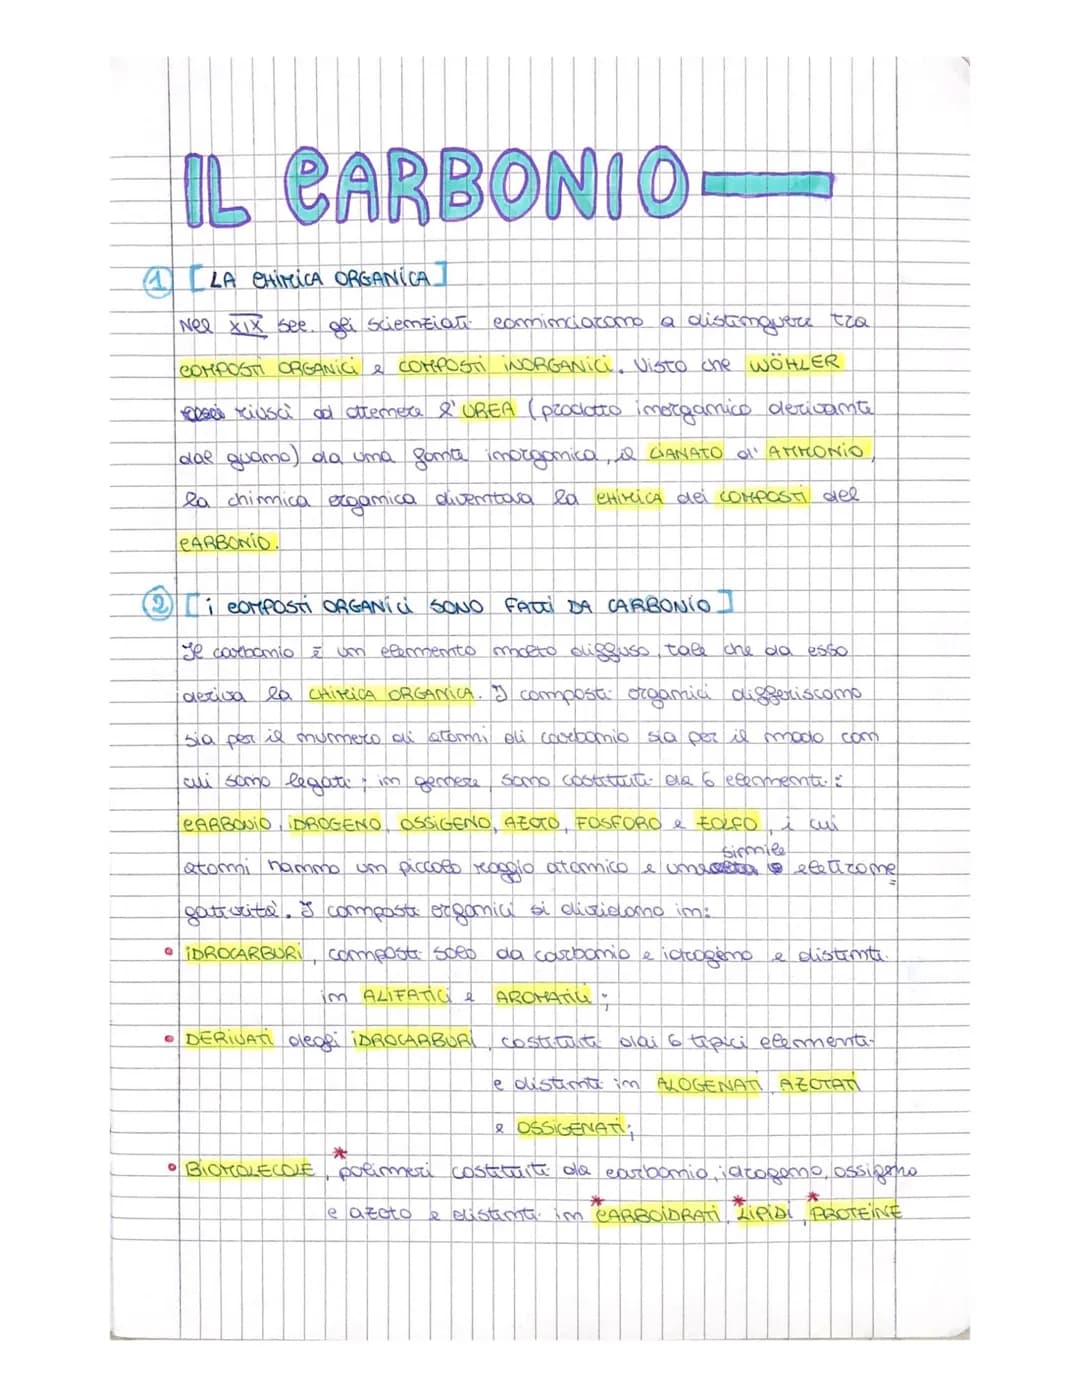 IL CARBONIO
1 [LA CHIMICA ORGANICA]
Nel XIX sec. gli scienziati cominciarono a distinguere tra
COMPOSTI ORGANICI e COMPOSTI INORGANICI. Visto che WÖHLER
riuscì ad ottenere l'UREA (prodotto inorganico derivante
dal guano) da una fonte inorganica, il CIANATO di AMMONIO,
la chimica organica diventava la CHIMICA dei COMPOSTI del
CARBONIO.
2 [i COMPOSTI ORGANICI SONO FATTI DA CARBONIO]
Il carbonio è un elemento molto diffuso, tale che da esso
deriva la CHIMICA ORGANICA. I composti organici differiscono
sia per il numero di atomi di carbonio sia per il modo con
cui sono legati; in genere sono costituiti da 6 elementi:
CARBONIO, IDROGENO, OSSIGENO, AZOTO, FOSFORO e ZOLFO, i cui
simile
atomi hanno un piccolo raggio atomico e una elettrone=
gatività. I composti organici si dividono in:
• IDROCARBURI, composti solo da carbonio e idrogeno e distinti
in ALIFATICI e AROMATICI;
• DERIVATI degli IDROCARBURI, costituiti dai 6 tipici elementi
e distinti in ALOGENATI, AZOTATI
e OSSIGENATI;
• BIOMOLECOLE, *polimeri costituiti da carbonio, idrogeno, ossigeno
e azoto e distinti in *CARBOIDRATI, *LIPIDI, *PROTEINE